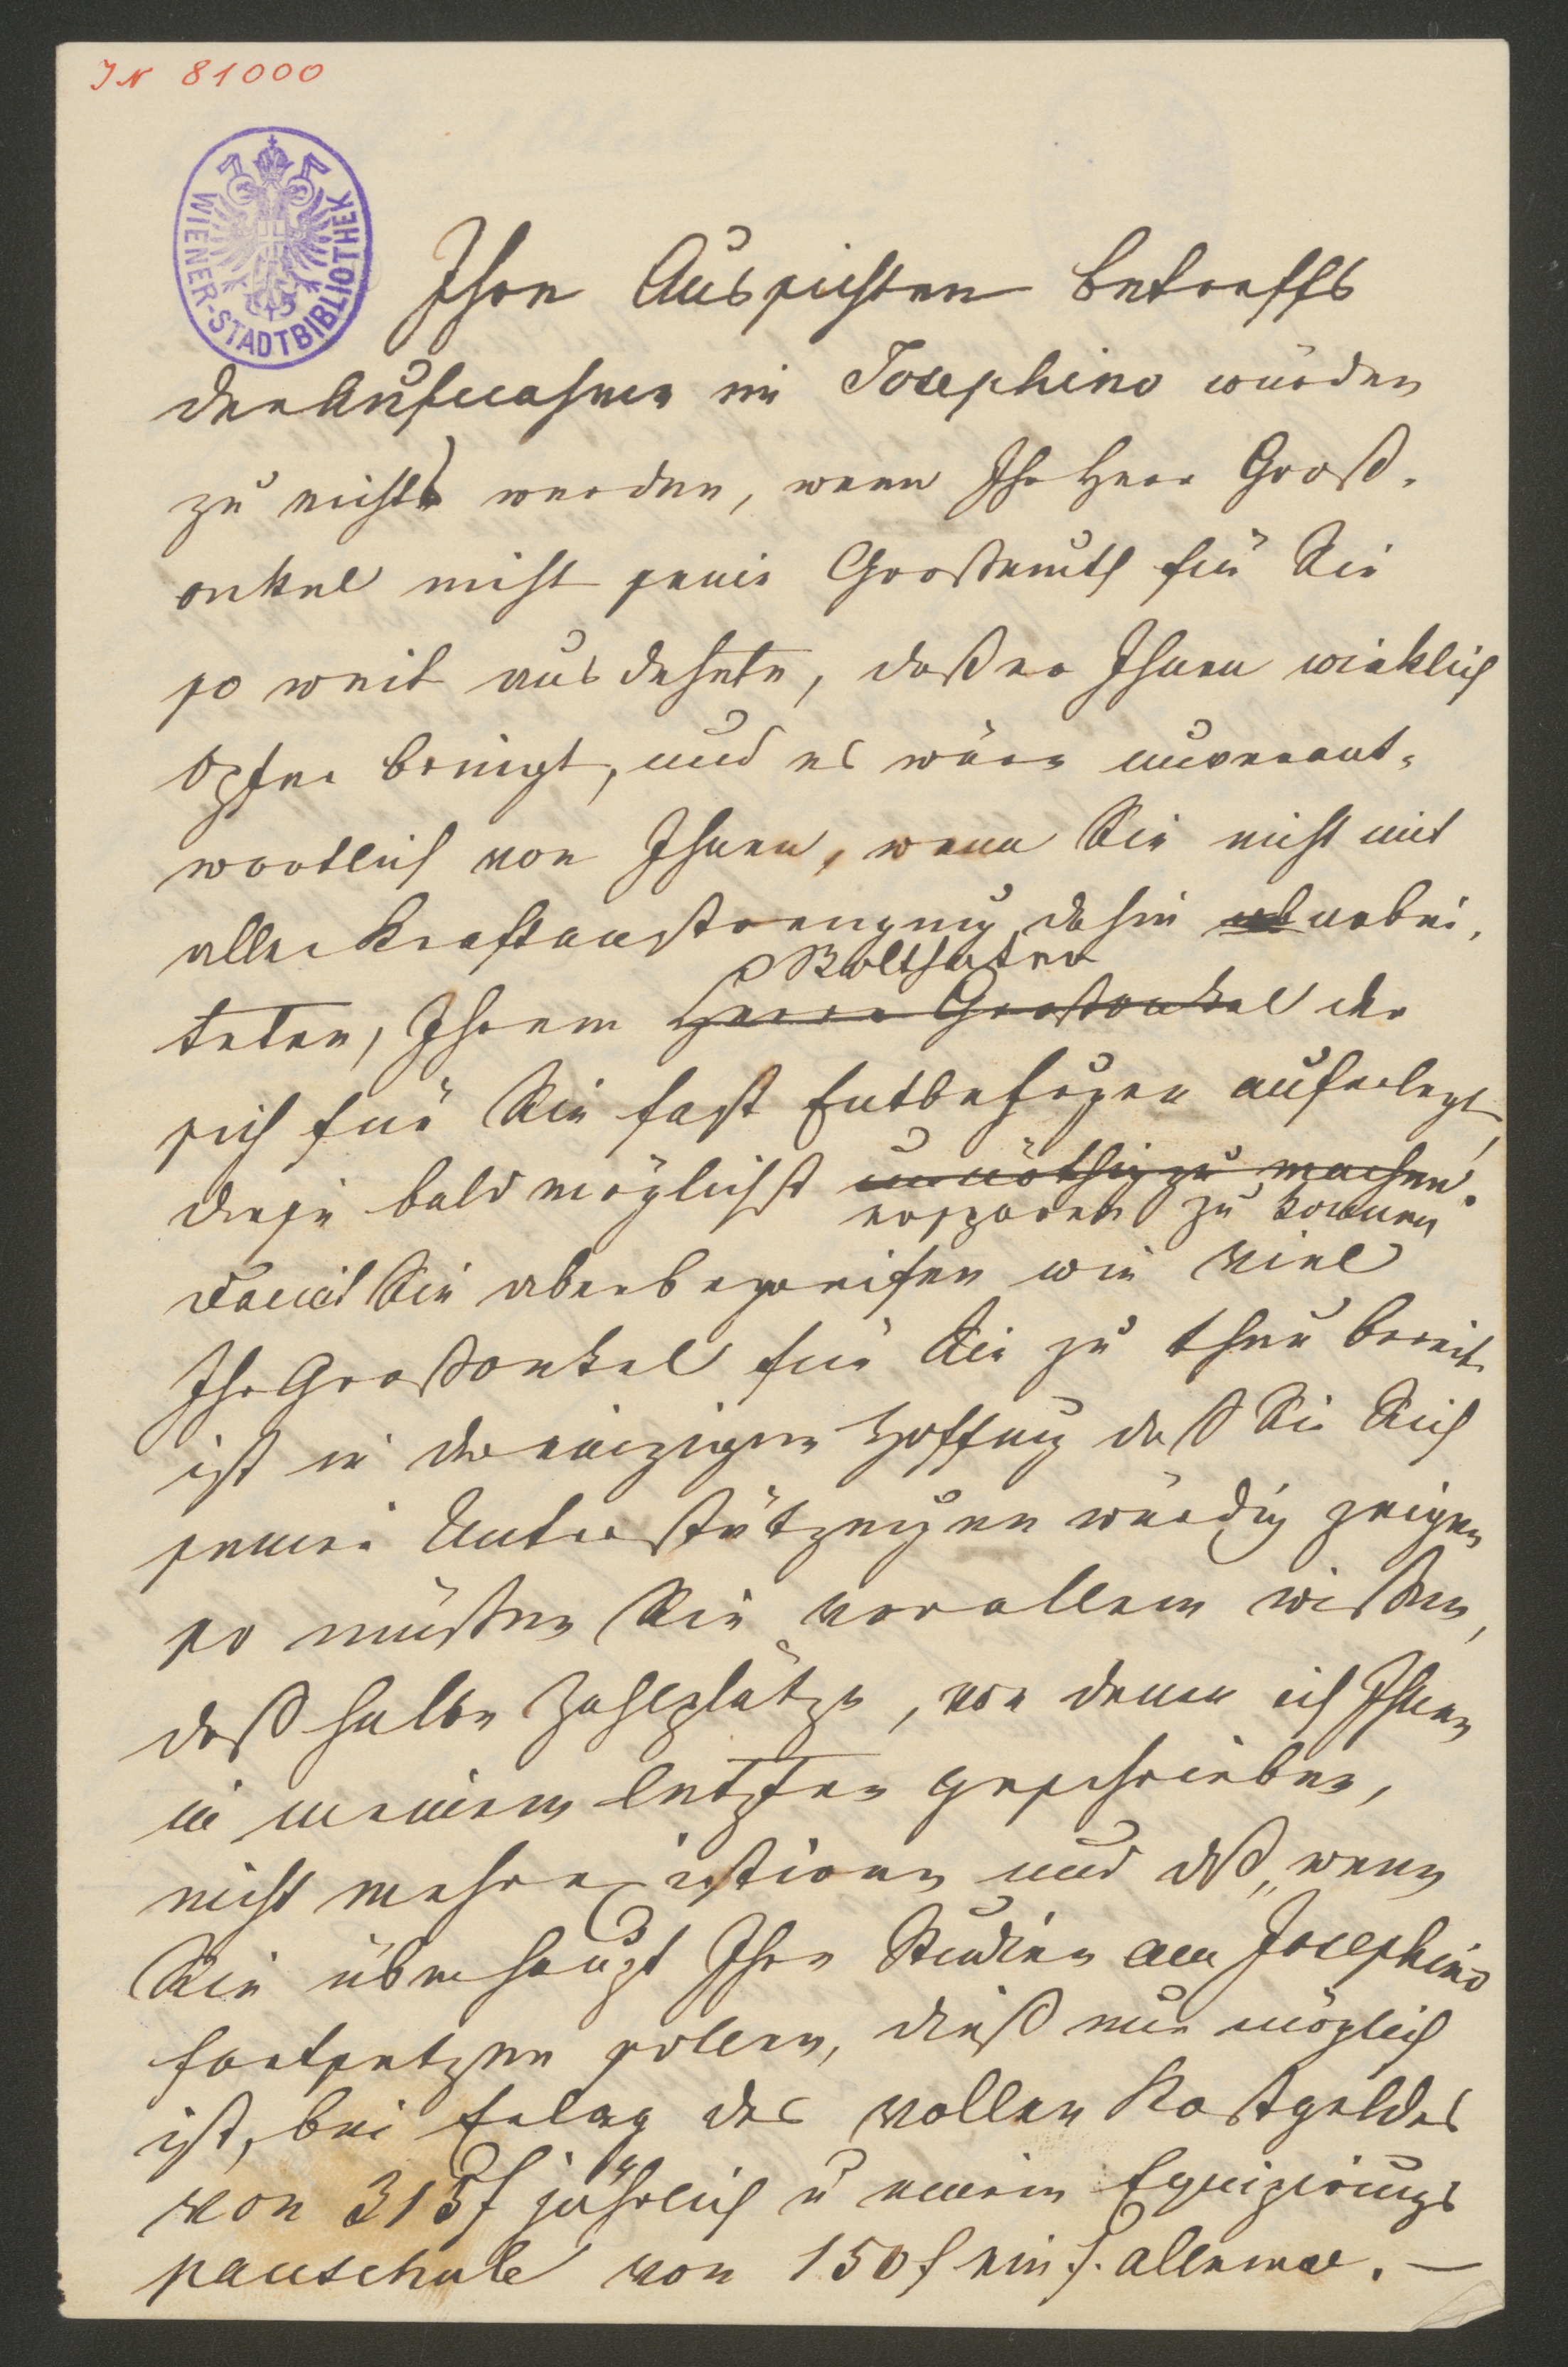 IN 81000
WIENER-STADTBIBLIOTHEK
Ihre Aussichten betreffs
der Aufnahme im Josephino würden
zu nichts werden, wenn Ihr Herr Groß-
onkel nicht seine Großmuth für Sie
so weit ausdehnte, daß er Ihnen wirklich
Opfer bringt, und es wäre unverant-
wortlich von Ihnen, wenn Sie nicht mit
aller Kraftanstrengung dahin arbei-
Wolthäter
teten, Ihrem Herrn Großonkel der
sich für Sie fast Entbehrungen auferlegt,
diese bald möglichst unnöthig zu machen.
ersparen zu können
Damit Sie aber begreifen wie viel
Ihr Großonkel für Sie zu thun bereit
ist in der einzigen Hoffnung daß Sie Sich
seiner Unterstützungen würdig zeigen
so müßen Sie vor allem wißen,
daß halbe Zahlplätze, von denen ich Ihnen
in meinem letzten geschrieben,
nicht mehr existiren und daß, wenn
Sie überhaupt Ihre Studien am Josephino
fortsetzen sollen, dieß nur möglich
ist, bei Erlag des vollen Kostgeldes
von 315f jährlich u einem Equipirungs
pauschale von 150f ein f. allemal. —